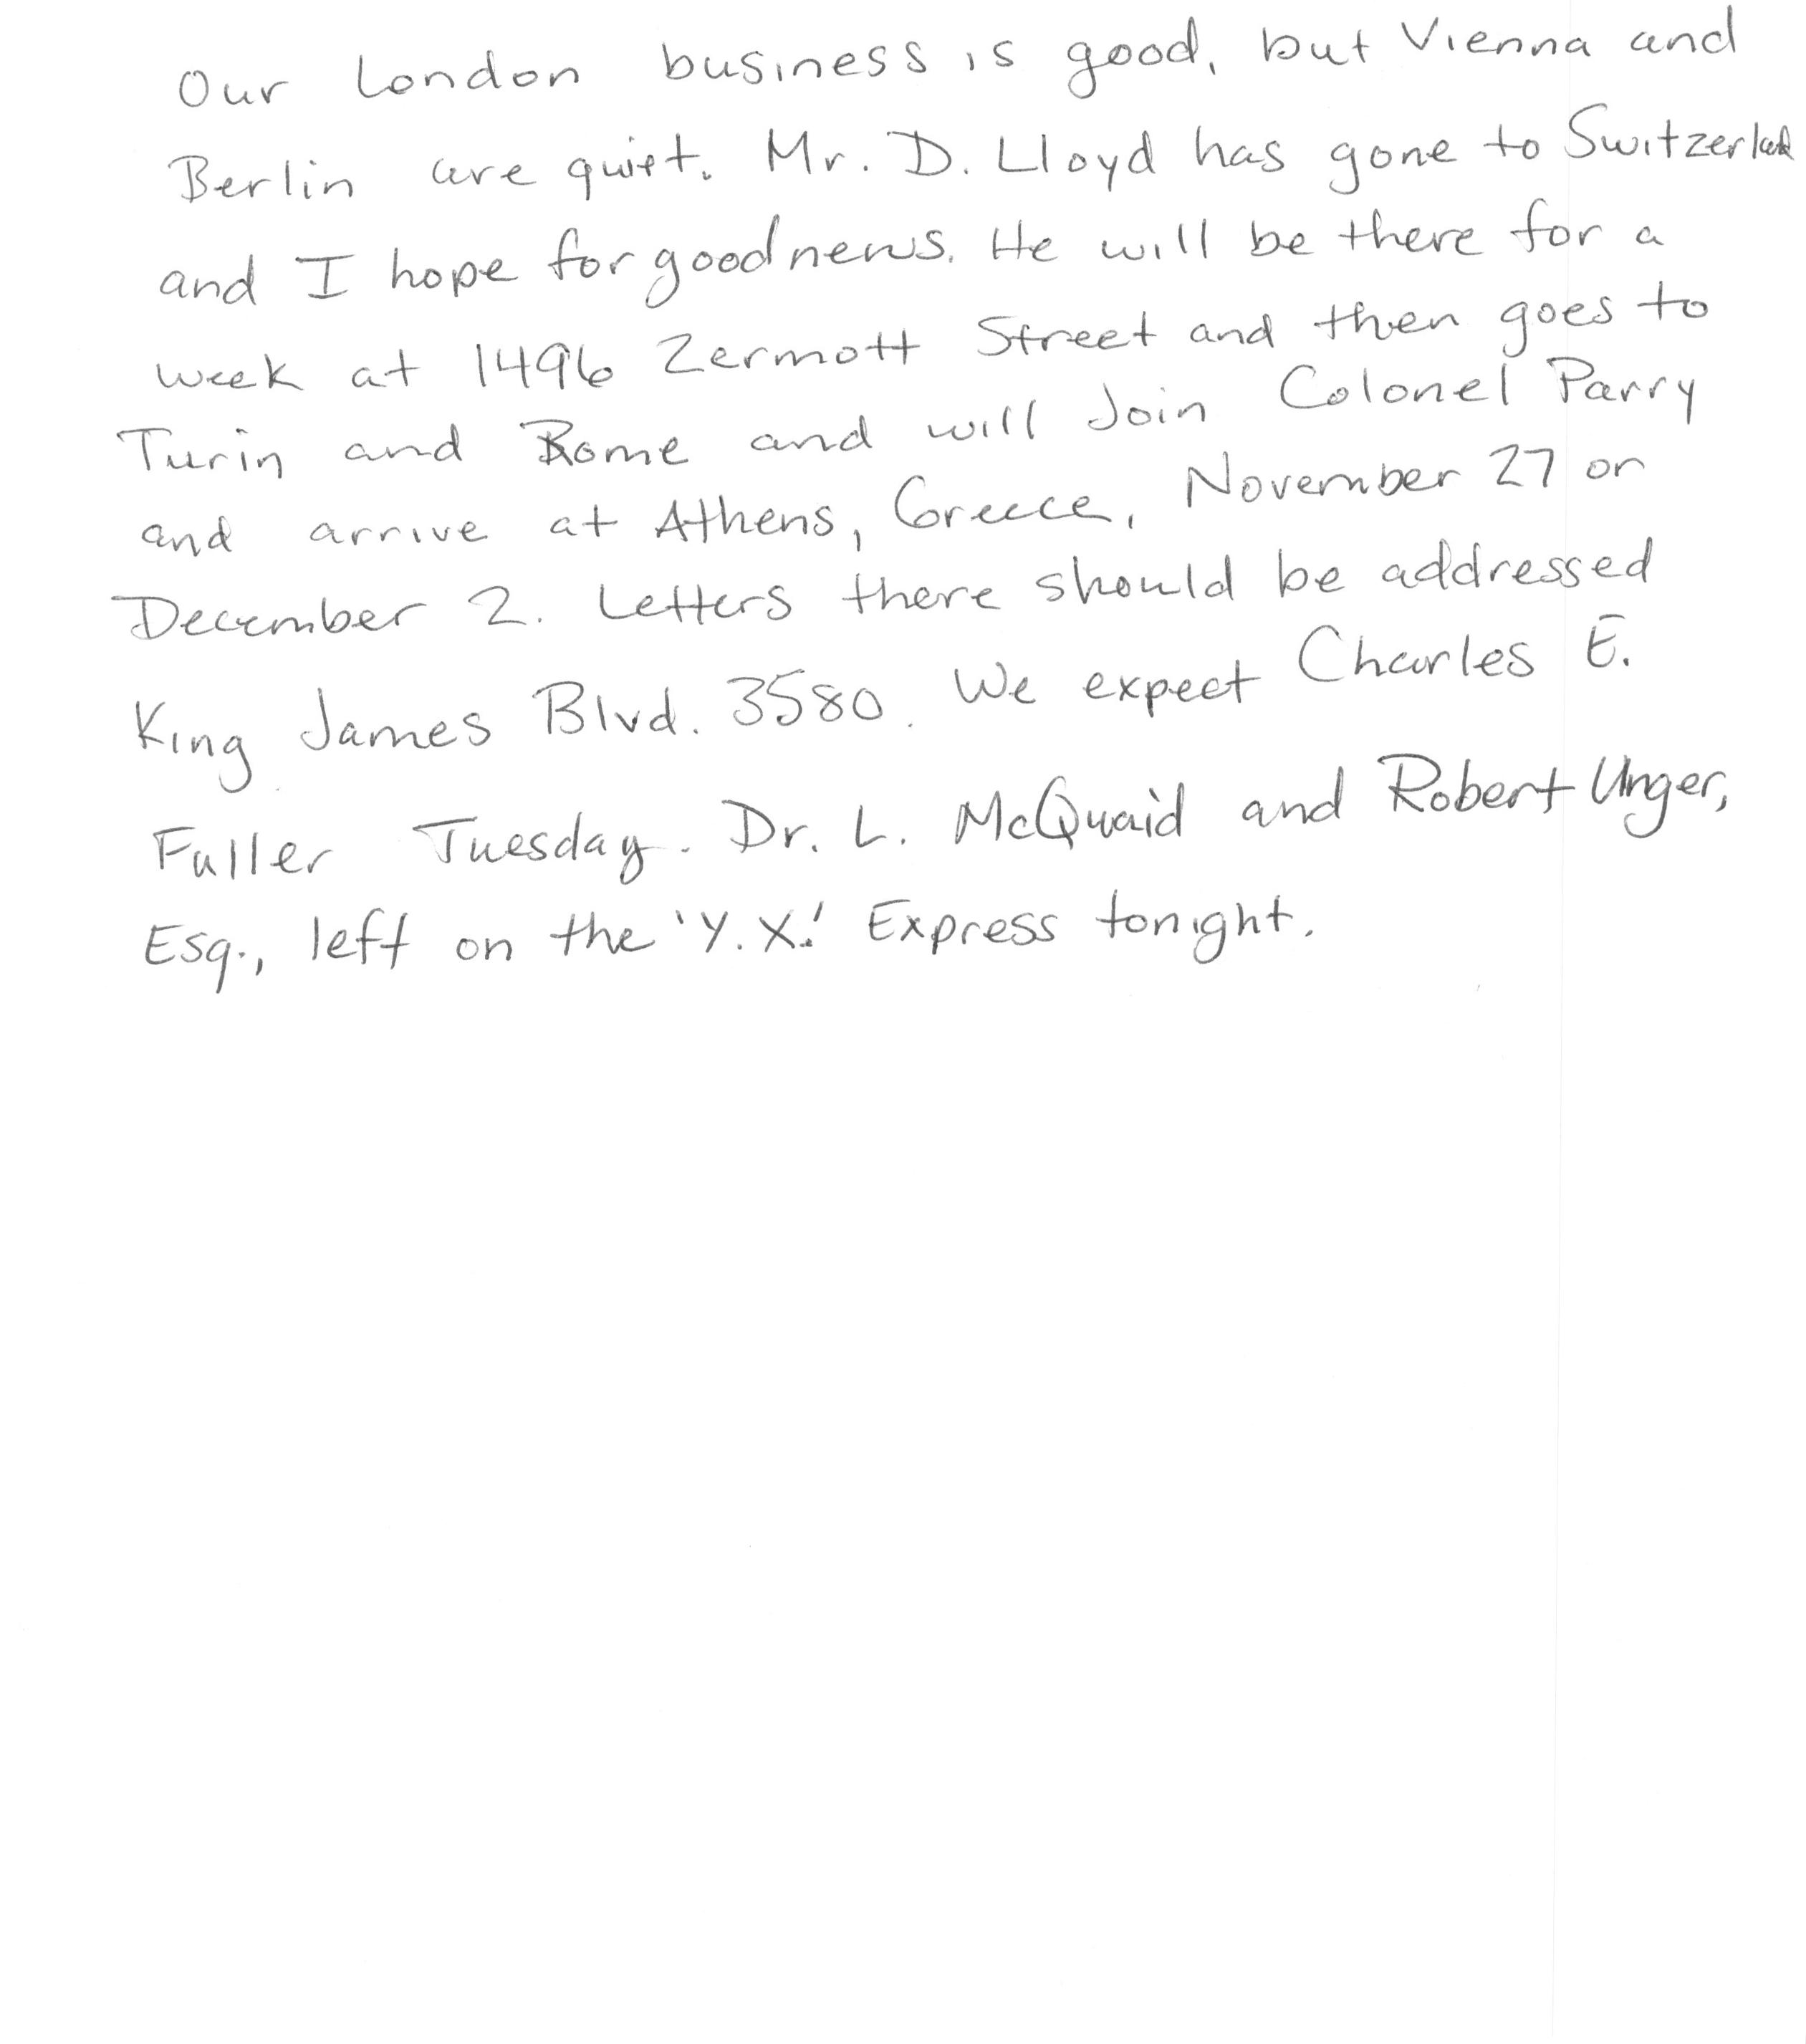 Our London business is good, but Vienna and
Berlin are quiet. Mr. D. Lloyd has gone to Switzerland
and I hope for good news. He will be there for a
week at 1496 Zermott Street and then goes to
Turin and Rome and will Join Colonel Parry
and arrive at Athens, Greece, November 27 or
December 2. Letters there should be addressed
King James Blvd. 3580. We expect Charles E.
Fuller Tuesday. Dr. L. McQuaid and Robert Unger,
Esq., left on the 'Y.X.' Express tonight.